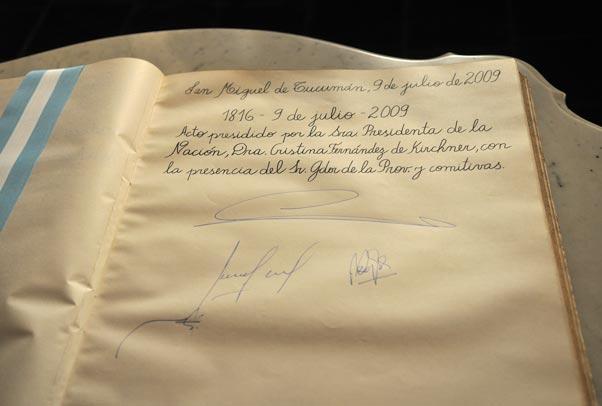 San Miguel de Tucumán, 9 de julio de 2009
1816 - 9 de julio - 2009
Acto presidido por la Sra Presidenta de la
Nación, Dra. Cristina Fernández de Kirchner, con
la presencia del Sr. Gdor de la Prov. y comitivas.